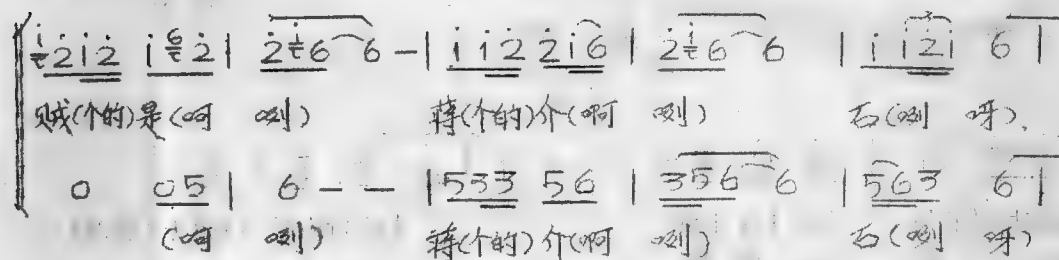 i 2̇ i 2̇ i 6 2̇ | 2̇ i 6 6 - | i i 2̇ 2̇ i 6 | 2̇ i 6 6 | i i 2̇ i 6 |
贼(个的)是(呵 咧) 蒋(个的)介(啊 咧) 石(咧 呀)、
0 0 5 | 6 - - | 5 3 3 5 6 | 3 5 6 6 | 5 6 3 6 |
(呵 咧) 蒋(个的)介(啊 咧) 石(咧 呀)